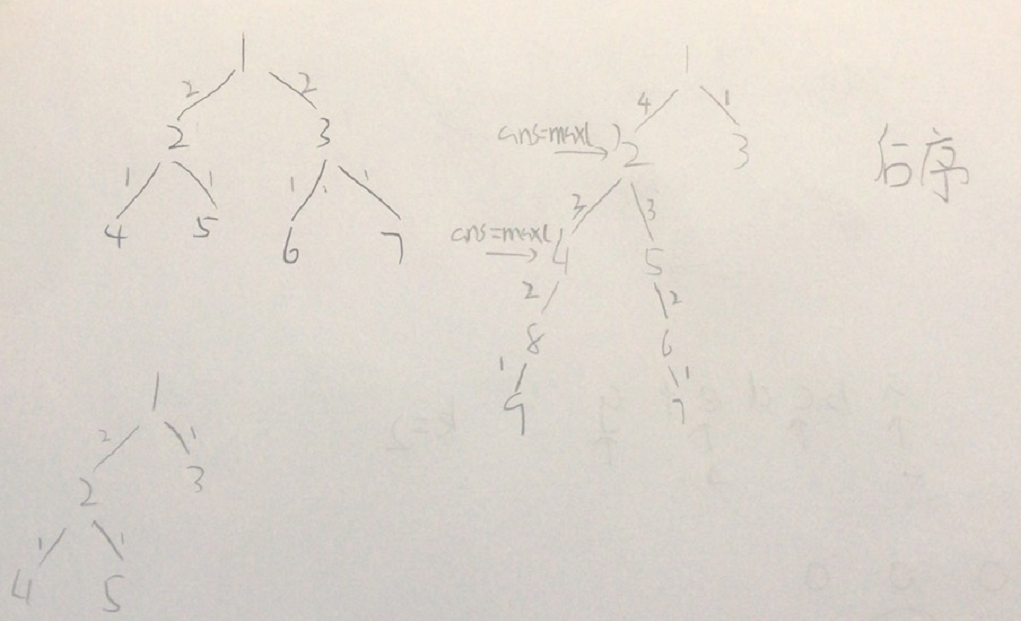 1
2 2
2 3
1 1 1 1
4 5 6 7
1
4 1
ans=max( )
2 3
3 3
ans=max(
4 5
2 2
8 6
1 1
9 7
后序
1
2 1
2 3
1 1
4 5
k=2